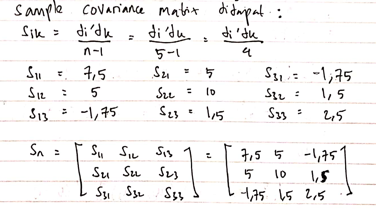 Sample covariance matrix didapat :
Sik = di'dk / n-1 = di'dk / 5-1 = di'dk / 4
S11 = 7,5 S21 = 5 S31 = -1,75
S12 = 5 S22 = 10 S32 = 1,5
S13 = -1,75 S23 = 1,5 S33 = 2,5
Sn = [ S11 S12 S13 ] = [ 7,5 5 -1,75 ]
S21 S22 S23 5 10 1,5
S31 S32 S33 -1,75 1,5 2,5